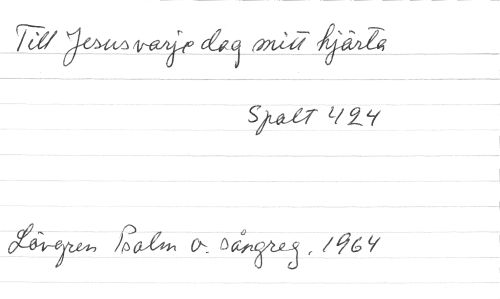 Till Jesus varje dag mitt hjärta
Spalt 424
Lövgren Psalm o. sångreg. 1964